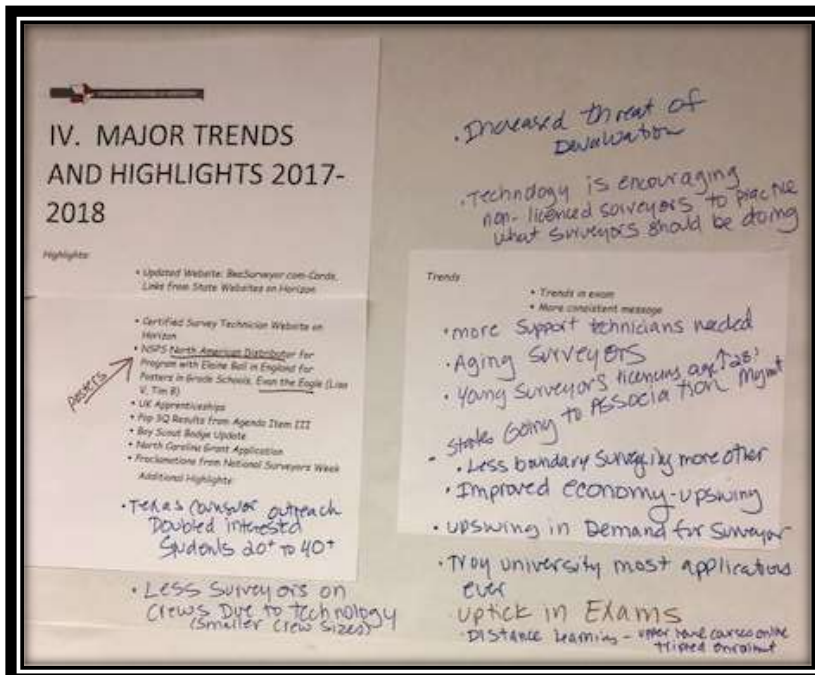 IV. MAJOR TRENDS
AND HIGHLIGHTS 2017-
2018
Highlights:
• Updated Website: BeaSurveyor.com-Cards,
Links from State Websites on Horizon
• Certified Survey Technician Website on
Horizon
• NSPS North American Distributor for
Program with Elaine Ball in England for
Posters in Grade Schools, Evan the Eagle (Lisa
V, Tim B)
posters
• UK Apprenticeships
• Pop SQ Results from Agenda Item III
• Boy Scout Badge Update
• North Carolina Grant Application
• Proclamations from National Surveyors Week
Additional Highlights:
• Texas outreach
Doubled interested
Students 20+ to 40+
• Less Surveyors on
Crews Due to Technology
(Smaller Crew Sizes)
• Increased threat of
Devaluation
• Technology is encouraging
non-licenced surveyors to practice
what surveyors should be doing
Trends
• Trends in exam
• More consistent message
• more Support technicians needed
• Aging Surveyors
• Young Surveyors age ↑ 28?
• States Going to Association Mgmt
• Less boundary Surveying more other
• Improved economy-upswing
• upswing in Demand for Surveyor
• Troy university most applications
ever
uptick in Exams
• Distance Learning - courses online
enrollment